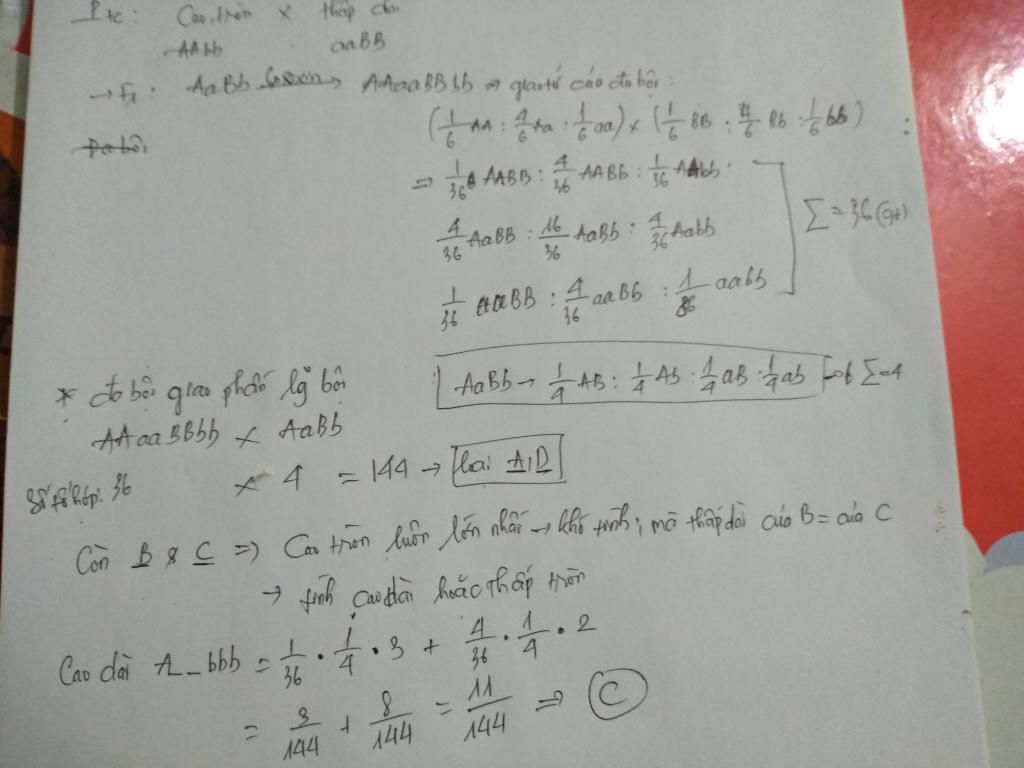 Ptc: Cao, tròn × thấp dài
AAbb aaBB
→ F1: AaBb Cosixin→ AAaaBBbb ⇒ giao tử của đa bội:
Đa bội
(1/6 AA : 4/6 Aa : 1/6 aa) × (1/6 BB : 4/6 Bb : 1/6 bb)
⇒ 1/36 AABB : 4/36 AABb : 1/36 AAbb :
4/36 AaBB : 16/36 AaBb : 4/36 Aabb
Σ = 36 (gt)
1/36 aaBB : 4/36 aaBb : 1/36 aabb
AaBb → 1/4 AB : 1/4 Ab : 1/4 aB : 1/4 ab Σ=4
* đa bội giao phấn lg bội
AAaaBBbb × AaBb
Số tổ hợp: 36 × 4 = 144 → loại A,D
Còn B & C ⇒ Cao tròn luôn lớn nhất → khó tính, mà thấp dài của B = của C
→ tính cao dài hoặc thấp tròn
Cao dài A_bbb = 1/36 . 1/4 . 3 + 4/36 . 1/4 . 2
= 3/144 + 8/144 = 11/144 ⇒ C